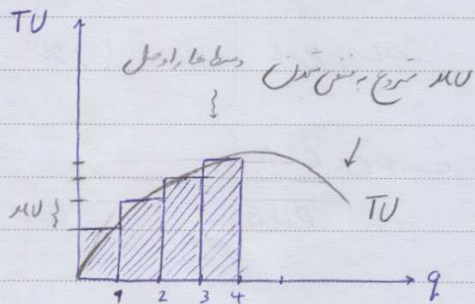 TU
وسط‌ها را وصل
MU شروع به منفی شدن
MU
TU
1 2 3 4 q